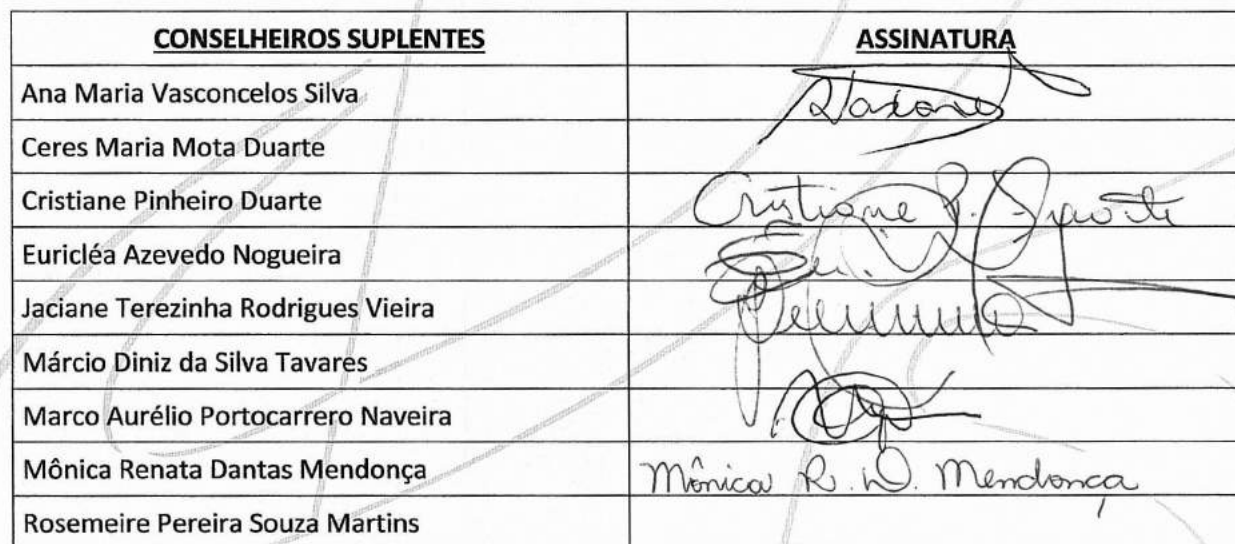 CONSELHEIROS SUPLENTES ASSINATURA
Ana Maria Vasconcelos Silva
Ceres Maria Mota Duarte
Cristiane Pinheiro Duarte Cristiane P. Duarte
Euricléa Azevedo Nogueira
Jaciane Terezinha Rodrigues Vieira
Márcio Diniz da Silva Tavares
Marco Aurélio Portocarrero Naveira
Mônica Renata Dantas Mendonça Mônica R. D. Mendonça
Rosemeire Pereira Souza Martins